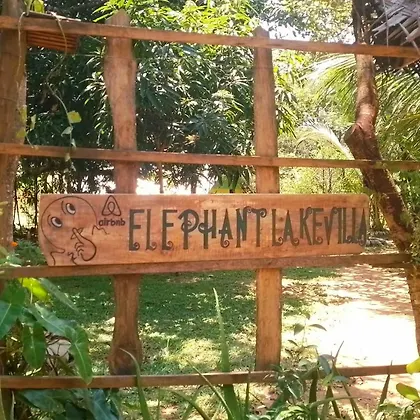 airbnb
ELEPHANT LAKEVILLA